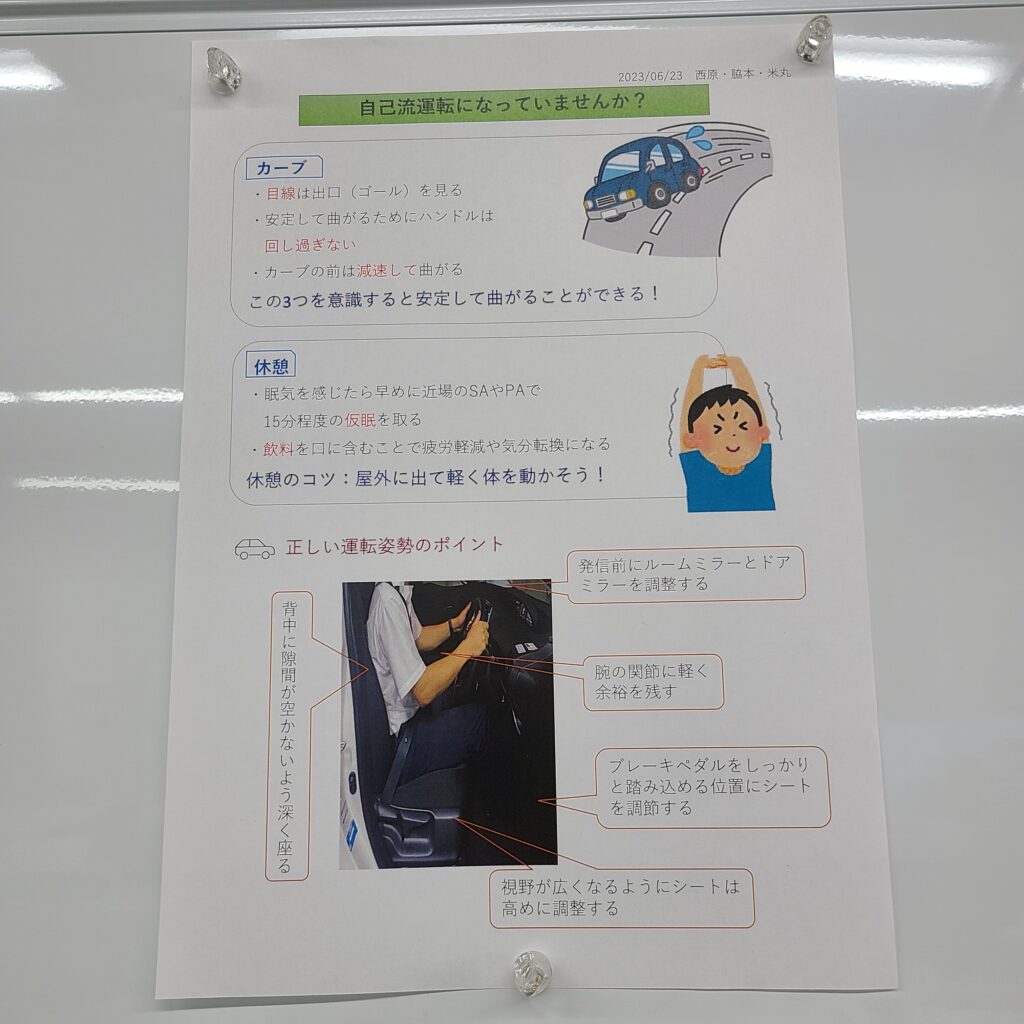 2023/06/23 西原・脇本・米丸
自己流運転になっていませんか？
カーブ
・目線は出口（ゴール）を見る
・安定して曲がるためにハンドルは
回し過ぎない
・カーブの前は減速して曲がる
この3つを意識すると安定して曲がることができる！
休憩
・眠気を感じたら早めに近場のSAやPAで
15分程度の仮眠を取る
・飲料を口に含むことで疲労軽減や気分転換になる
休憩のコツ：屋外に出て軽く体を動かそう！
正しい運転姿勢のポイント
発信前にルームミラーとドア
ミラーを調整する
背中に隙間が空かないよう深く座る
腕の関節に軽く
余裕を残す
ブレーキペダルをしっかり
と踏み込める位置にシート
を調節する
視野が広くなるようにシートは
高めに調整する